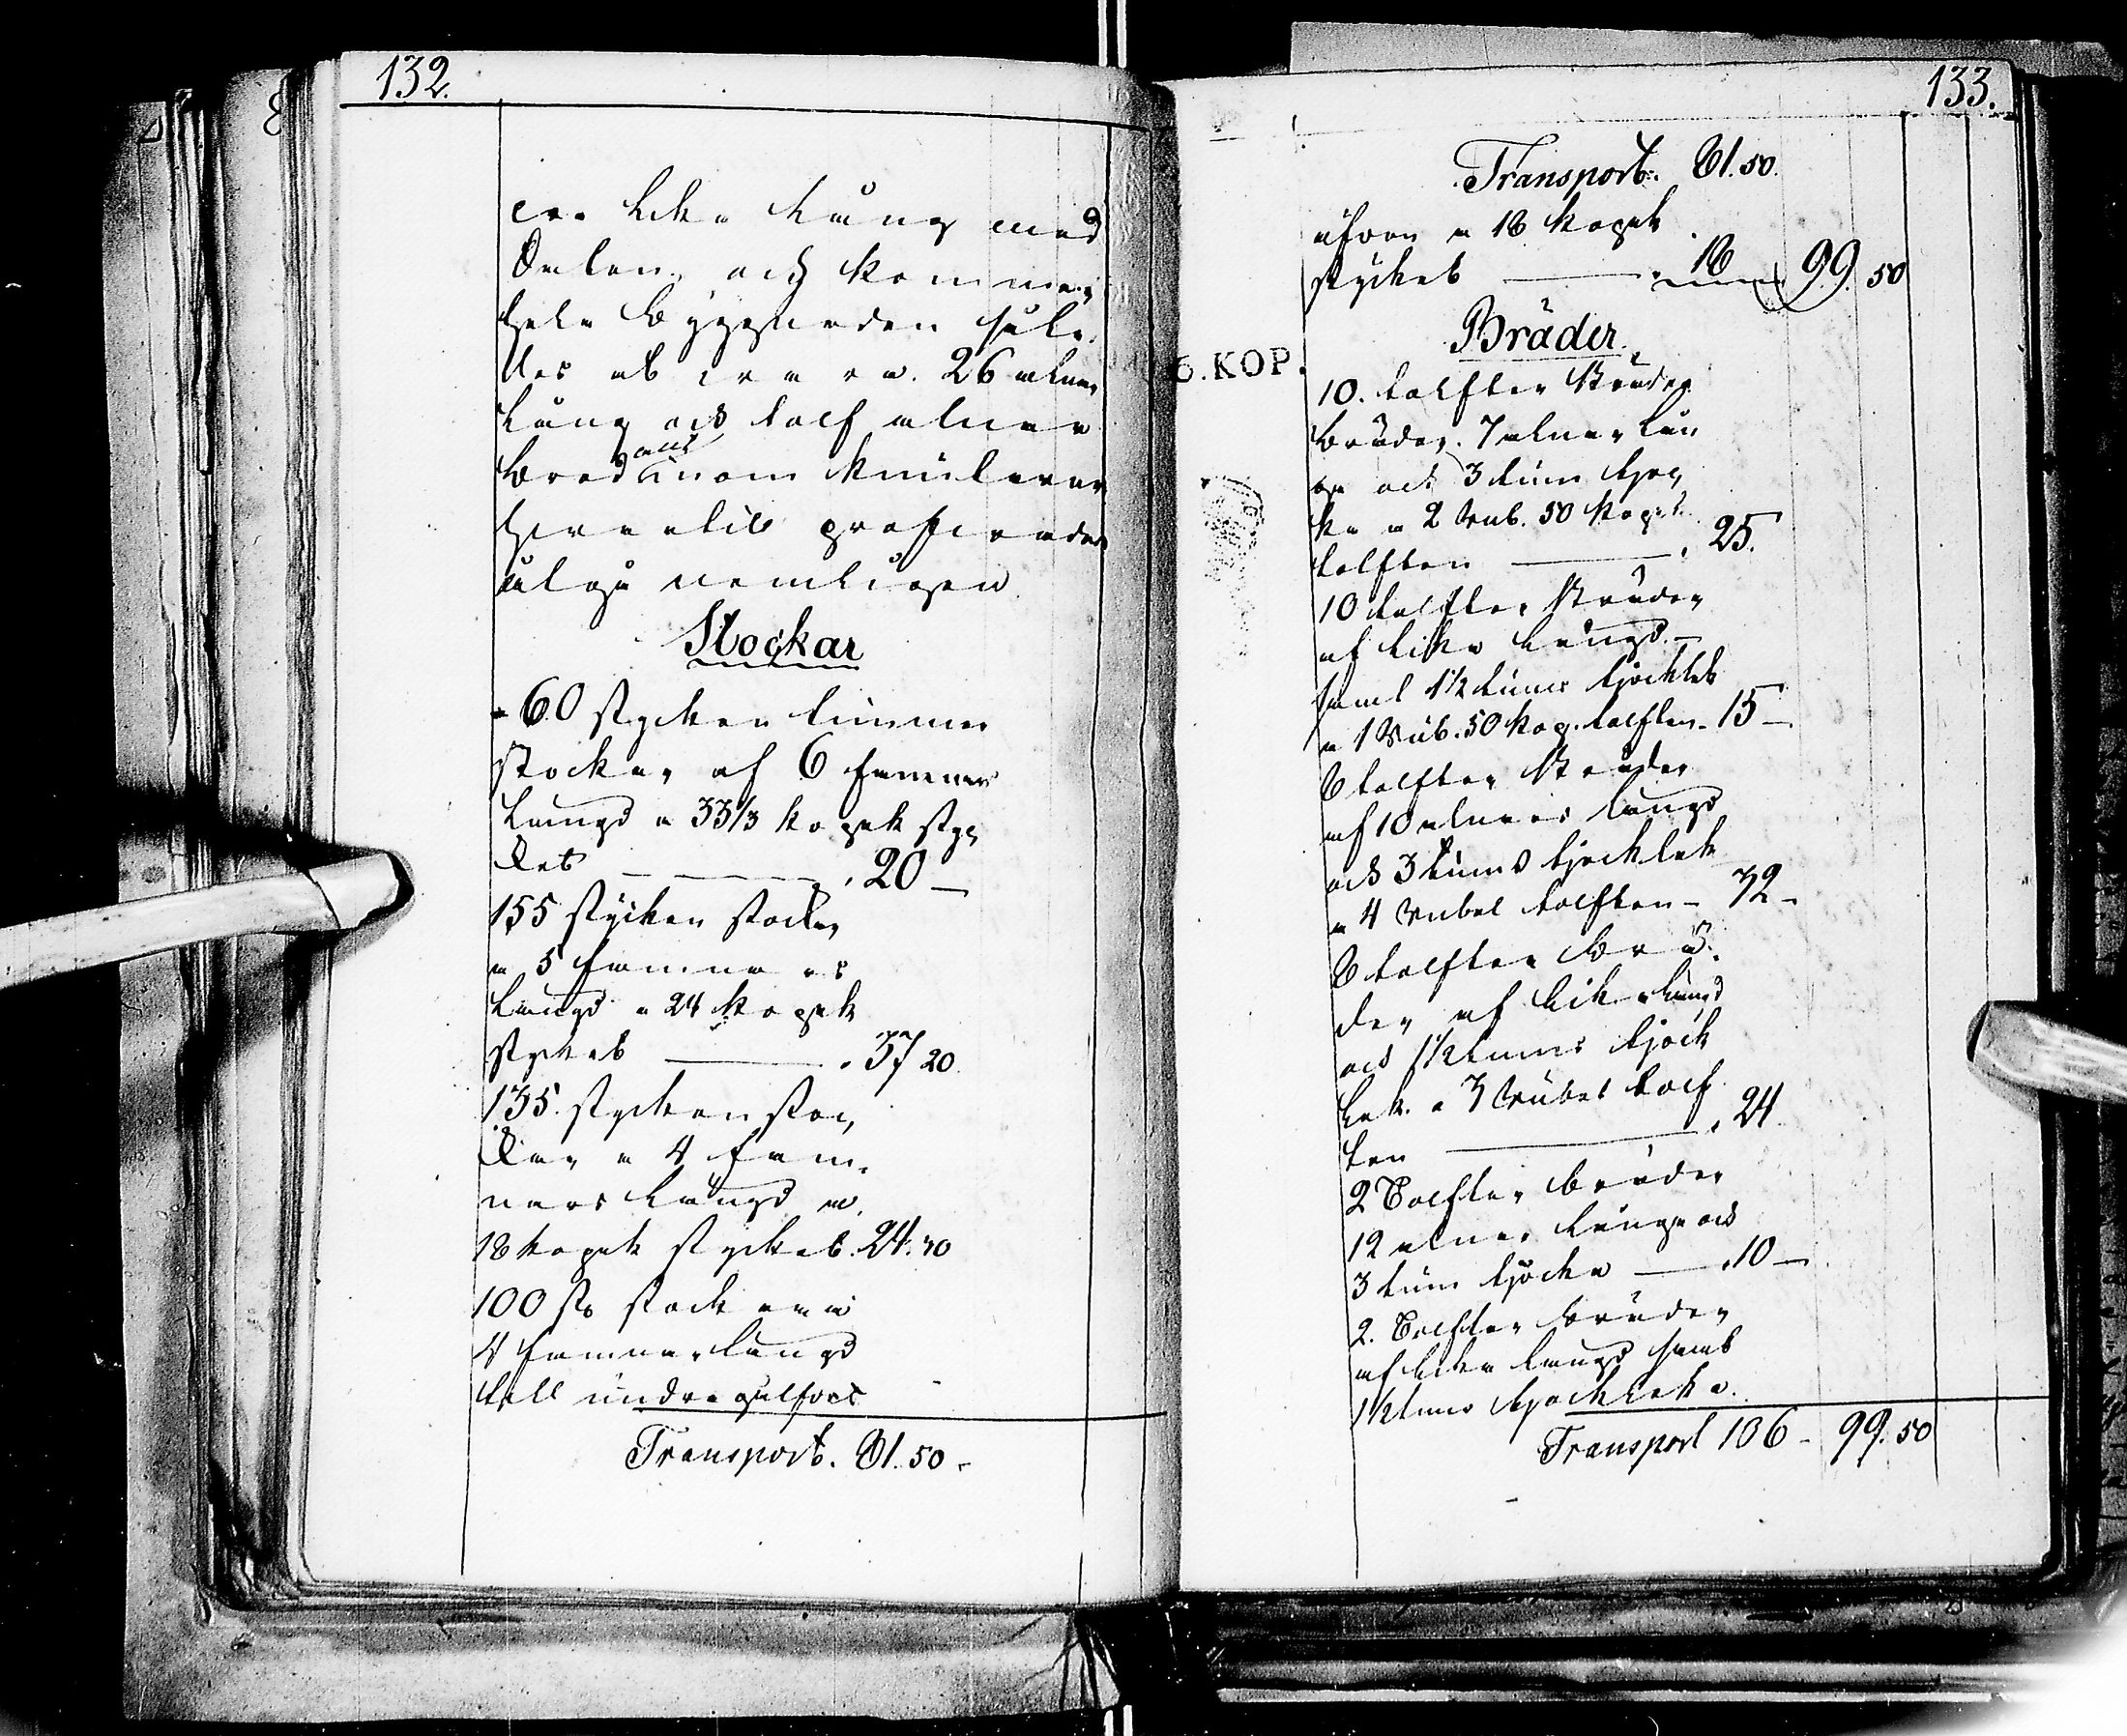 132.
era lika lång med
Salen, och kommer
hela byggnaden såle,
des at vara 26 alnar
lång och tolf alnar
bred allt inom knutarna
hvartill proficeras
utgå nemligen
Stockar
60 stycken timmer
stockar af 6 famnars
Längd a 33 1/3 kopek styc,
ket - 20 -
155 stycken stockar
a 5 famnars
Längd a 24 kopek
stycket - 37 20.
135. stycken stoc,
kar a 4 fam,
nars Längd a
18 kopek stycket. 24. 30
100 st stockar a
4 famnar längd
till undra gulfvet
Transport. 81. 50.
133.
Transport. 81. 50.
6. KOP.
ofvan a 18 kopek
stycket - 18 99. 50
Bräder
10. tolfter Streder
bräder. 7 alnar lån
ga och 3 tum tjoc,
ka a 2 Rub. 50 kopek
tolften - 25.
10 tolfter Streder
af lika Längd -
samt 1 1/2 tums tjocklek
a 1 Rub. 50 kop. tolften - 15 -
8 tolfter Streder
af 10 alnars längd
och 3 tums tjocklek
a 4 rubel tolften - 32 -
8 tolfter brä,
der af lika längd
och 1 1/2 tums tjock
lek. a 3 Rubel tolf
ten - 24
2 Tolfter bräder
12 alnar långa och
3 tum tjocka - 10 -
2. Tolfter bräder
af lika längd samt
1 1/2 tums tjocklek a.
Transport 106 - 99. 50